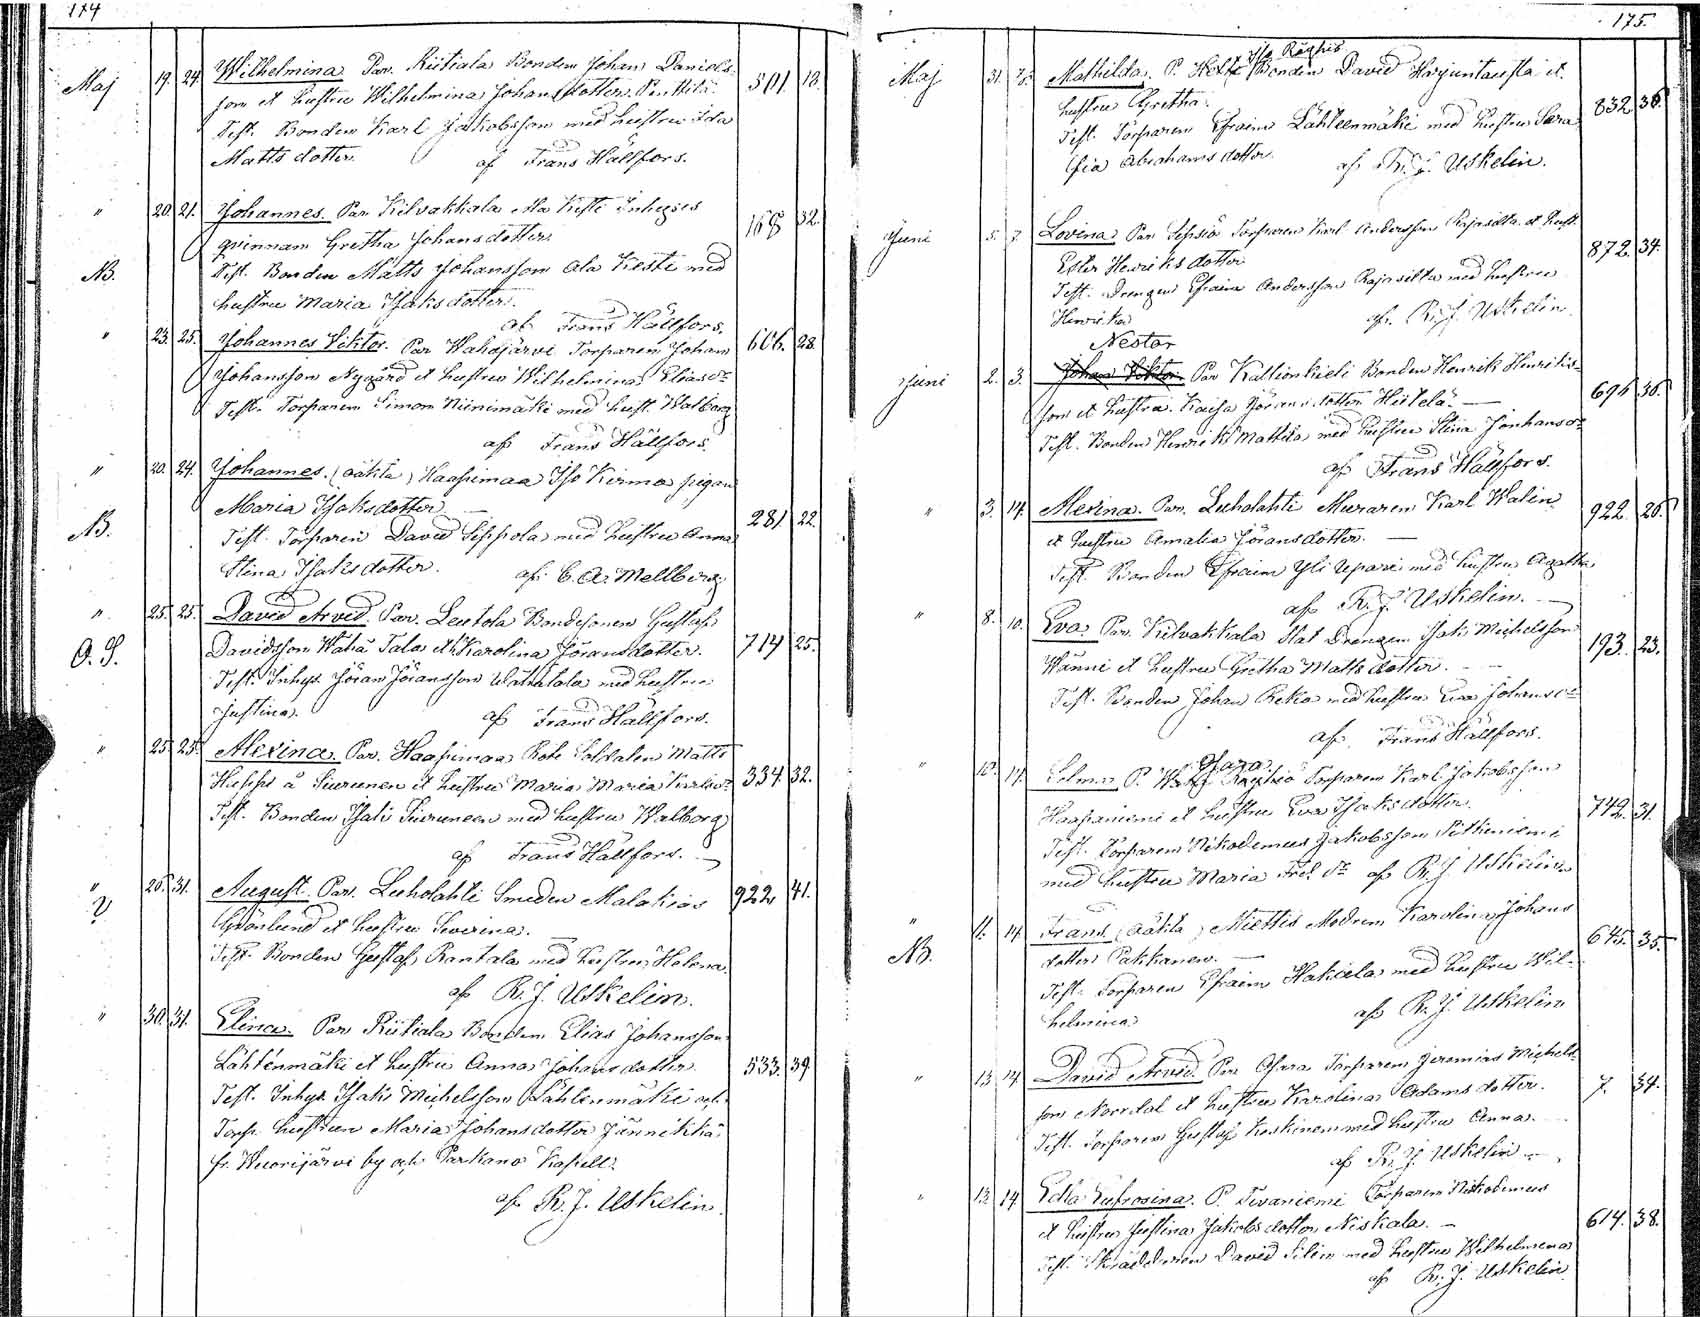 174
Maj 19. 24. Wilhelmina Par. Riitiala Bonden Johan Daniels-
son et hustru Wilhelmina Johansdotter Penttilä 501. 18.
Test. Bonden Karl Jakobsson med hustru Ida
Matts dotter. af Frans Hällfors.
" 20. 21. Johannes. Par. Kilvakkala Ala Kesti Inhyses
qvinnan Gretha Johansdotter. 168 32.
NB. Test. Bonden Matts Johansson Ala Kesti med
hustru Maria Isaksdotter.
af Frans Hällfors.
" 23. 25. Johannes Viktor. Par Wahojärvi Torparen Johan 606. 28.
Johansson Nygård et hustru Wilhelmina Eliasdr
Test. Torparen Simon Niinimäki med hust. Walborg
af Frans Hällfors.
" 20. 24. Johannes. (oäkta) Haapimaa Iso Kirmo pigan
Maria Isaksdotter 281 22.
NB. Test. Torparen David Sippola med hustru Anna
Stina Isaksdotter. af C. A. Mellberg.
" 25. 25. David Arvid. Par. Leutola Bondesonen Gustaf
O. S. Davidsson Wähä Talo et h Karolina Jöransdotter. 714 25.
Test. Inhys. Jöran Jöransson Wähätalo med hustru
Justina. af Frans Hällfors.
" 25. 25. Alexina. Par. Haapimaa Rote Soldaten Matts
Happi å Siurunen et hustru Maria Maria Karlsdr 334 32.
Test. Bonden Isak Siuruneen med hustru Walborg
af Frans Hällfors.
" 26. 31. August. Par. Luholahti Smeden Malakias 922 41.
Grönlund et hustru Severina.
Test. Bonden Gustaf Rantala med hustru Helena.
af R. J. Uskelin.
" 30. 31. Elina. Par Riitiala Bonden Elias Johansson
Lähténmäki et hustru Anna Johansdotter 533. 39.
Test. Inhys. Isak Michelsson Lähtenmäki och
Torp. hustrun Maria Johansdotter Jännikkä
fr. Wuorijärvi by och Parkano Kapell.
af R. J. Uskelin.
175.
Iso Röyhiö
Maj 31. Mathilda. P. Bonden David Harjuntausta et
hustru Gretha. 832 36.
Test. Torparen Efraim Lähteenmäki med hustru Sara
fia Abrahams dotter. af R. J. Uskelin.
Juni 5. 7. Lovina Par Sipsiö Torparen Karl Andersson Rajasilta et hust.
Ester Henriksdotter 872. 34.
Test. Drengen Efraim Andersson Rajasilta med hustru
Henrika af. R. J. Uskelin
Nestor
Juni 2. 3. Johan Viktor. Par Kallionkieli Bonden Henrik Henriks-
son et hustru Kaisa Jöransdotter Hietelä. 696 36.
Test. Bonden Henrik Mattila med hustru Stina Johansdr
af Frans Hällfors.
" 3. 14. Alexina. Par. Luholahti Muraren Karl Walin 922. 26.
et hustru Amalia Jöransdotter.
Test. Bonden Efraim Yli Upari med hustru Agatha
af R. J. Uskelin.
" 8. 10. Eva Par. Kilvakkala Stat Drengen Isak Michelsson
Wänni et hustru Gretha Matts dotter. 193. 23.
Test. Bonden Johan Reko med hustru Eva Johansdr
af Frans Hällfors.
Osara
" 12. 14. Selma. P. Torparen Karl Jakobsson
Haapaniemi et hustru Eva Isaksdotter. 742. 31.
Test. Torparen Nikodemus Jakobsson Pitkeniemi
med hustru Maria Fred. dr af R. J. Uskelin
" 11. 14. Frans (oäkta) Miettis Modren Karolina Johans
NB. dotter Pakkanen. 645. 35.
Test. Torparen Efraim Hakala med hustru Wil-
helmina af R. J. Uskelin
" 13. 14. David Arvid. Par Osara Torparen Jeremias Michels-
son Nordal et hustru Karolina Adams dotter. 7. 34.
Test. Torparen Gustaf Koskinen med hustru Anna.
af R. J. Uskelin
" 13. 14. Edla Eufrosina. P. Tevaniemi Torparen Nikodemus
et hustru Justina Jakobsdotter Niskala. 614. 38.
Test. Skräddaren David Silén med hustru Wilhelmina
af R. J. Uskelin